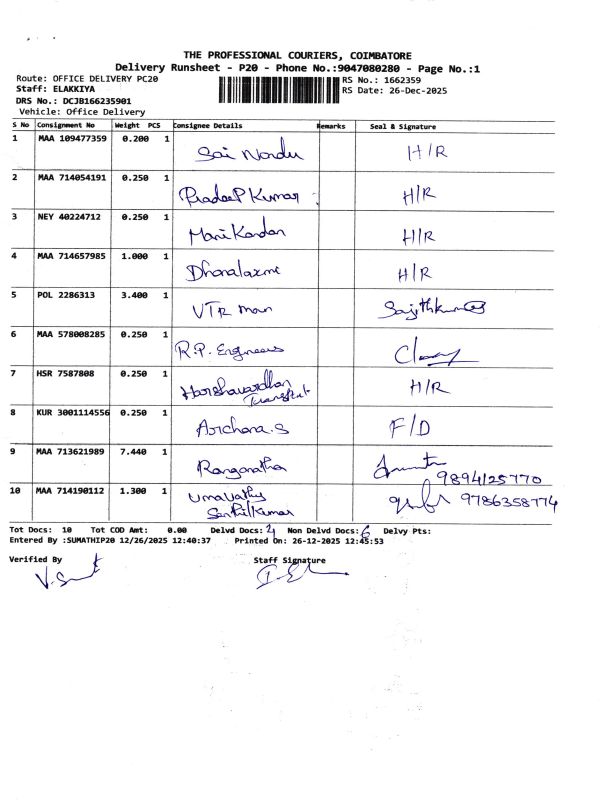 THE PROFESSIONAL COURIERS, COIMBATORE
Delivery Runsheet - P20 - Phone No.:9047080280 - Page No.:1
Route: OFFICE DELIVERY PC20
RS No.: 1662359
Staff: ELAKKIYA
RS Date: 26-Dec-2025
DRS No.: DCJB166235901
Vehicle: Office Delivery
S No Consignment No Weight PCS Consignee Details Remarks Seal & Signature
1 MAA 109477359 0.200 1 Sai Nandu H/R
2 MAA 714054191 0.250 1 Pradeep Kumar H/R
3 NEY 40224712 0.250 1 Mani Kandan H/R
4 MAA 714657985 1.000 1 Dhanalaxmi H/R
5 POL 2286313 3.400 1 VTR man Sajithkumar
6 MAA 578008285 0.250 1 R.P. Engineers
7 HSR 7587808 0.250 1 Harshavardhan H/R
8 KUR 3001114556 0.250 1 Archana.S F/D
9 MAA 713621989 7.440 1 Ranganatha 9894125770
10 MAA 714190112 1.300 1 Umavathy 9786358774
Senthil Kumar
Tot Docs: 10 Tot COD Amt: 0.00 Delvd Docs: 4 Non Delvd Docs: 6 Delvy Pts:
Entered By :SUMATHIP20 12/26/2025 12:40:37 Printed On: 26-12-2025 12:45:53
Verified By Staff Signature